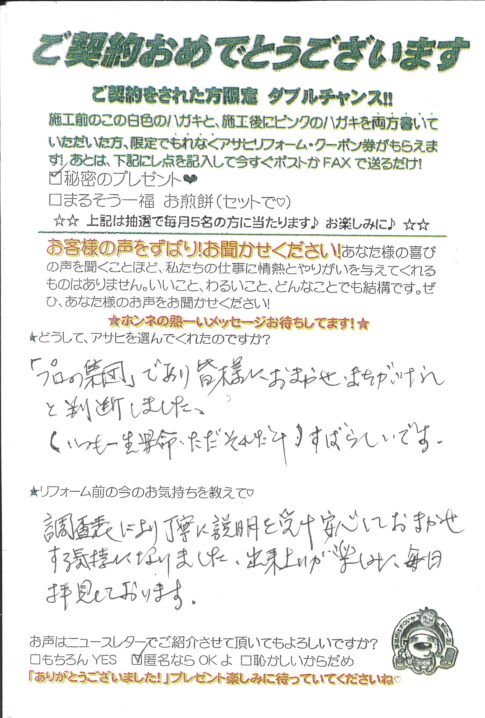 ご契約おめでとうございます
ご契約をされた方限定 ダブルチャンス!!
施工前のこの白色のハガキと、施工後にピンクのハガキを両方書いて
いただいた方、限定でもれなくアサヒリフォーム・クーポン券がもらえま
す! あとは、下記にレ点を記入して今すぐポストかFAXで送るだけ!
☑秘密のプレゼント❤
□まるぞう一福 お煎餅(セットで♡)
☆☆ 上記は抽選で毎月5名の方に当たります♪ お楽しみに♪ ☆☆
お客様の声をずばり!お聞かせください!あなた様の喜び
の声を聞くことほど、私たちの仕事に情熱とやりがいを与えてくれる
ものはありません。いいこと、わるいこと、どんなことでも結構です。ぜ
ひ、あなた様のお声をお聞かせください!
★ホンネの熱ーいメッセージお待ちしてます!★
★どうして、アサヒを選んでくれたのですか?
「プロの集団」であり皆様におまかせ、まちがいけれ
と判断しました。
(いつも一生懸命、ただそれだけ)すばらしいです。
★リフォーム前の今のお気持ちを教えて♡
調査表により丁寧に説明を受け安心しておまかせ
する気持になりました、出来上りが楽しみに、毎日
拝見しております。
お声はニュースレターでご紹介させて頂いてもよろしいですか?
□もちろんYES ☑匿名ならOKよ □恥かしいからだめ
「ありがとうございました!」プレゼント楽しみに待っていてくださいね♡